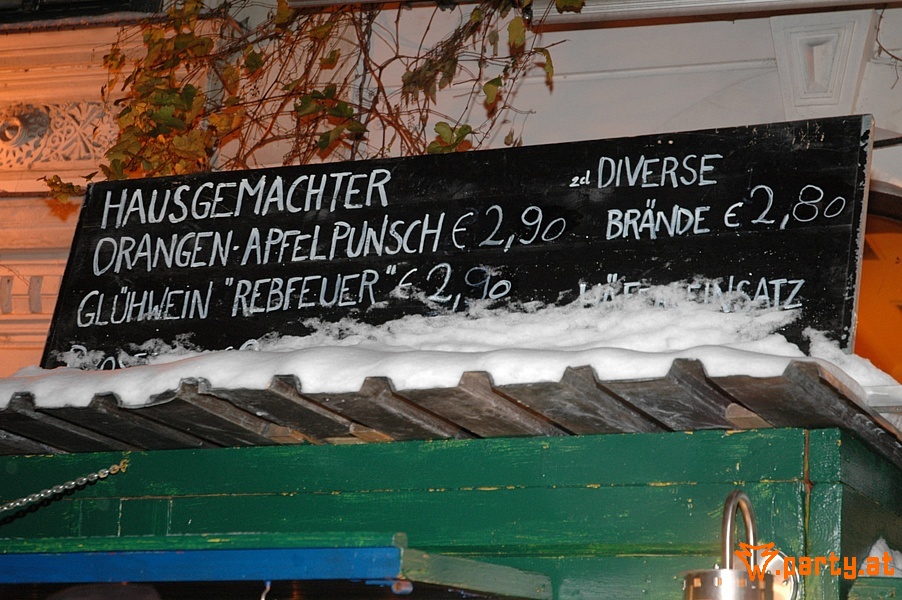 HAUSGEMACHTER
ORANGEN-APFELPUNSCH € 2,90
GLÜHWEIN "REBFEUER" € 2,90
2cl DIVERSE
BRÄNDE € 2,80
HÄFERLEINSATZ
w.party.at